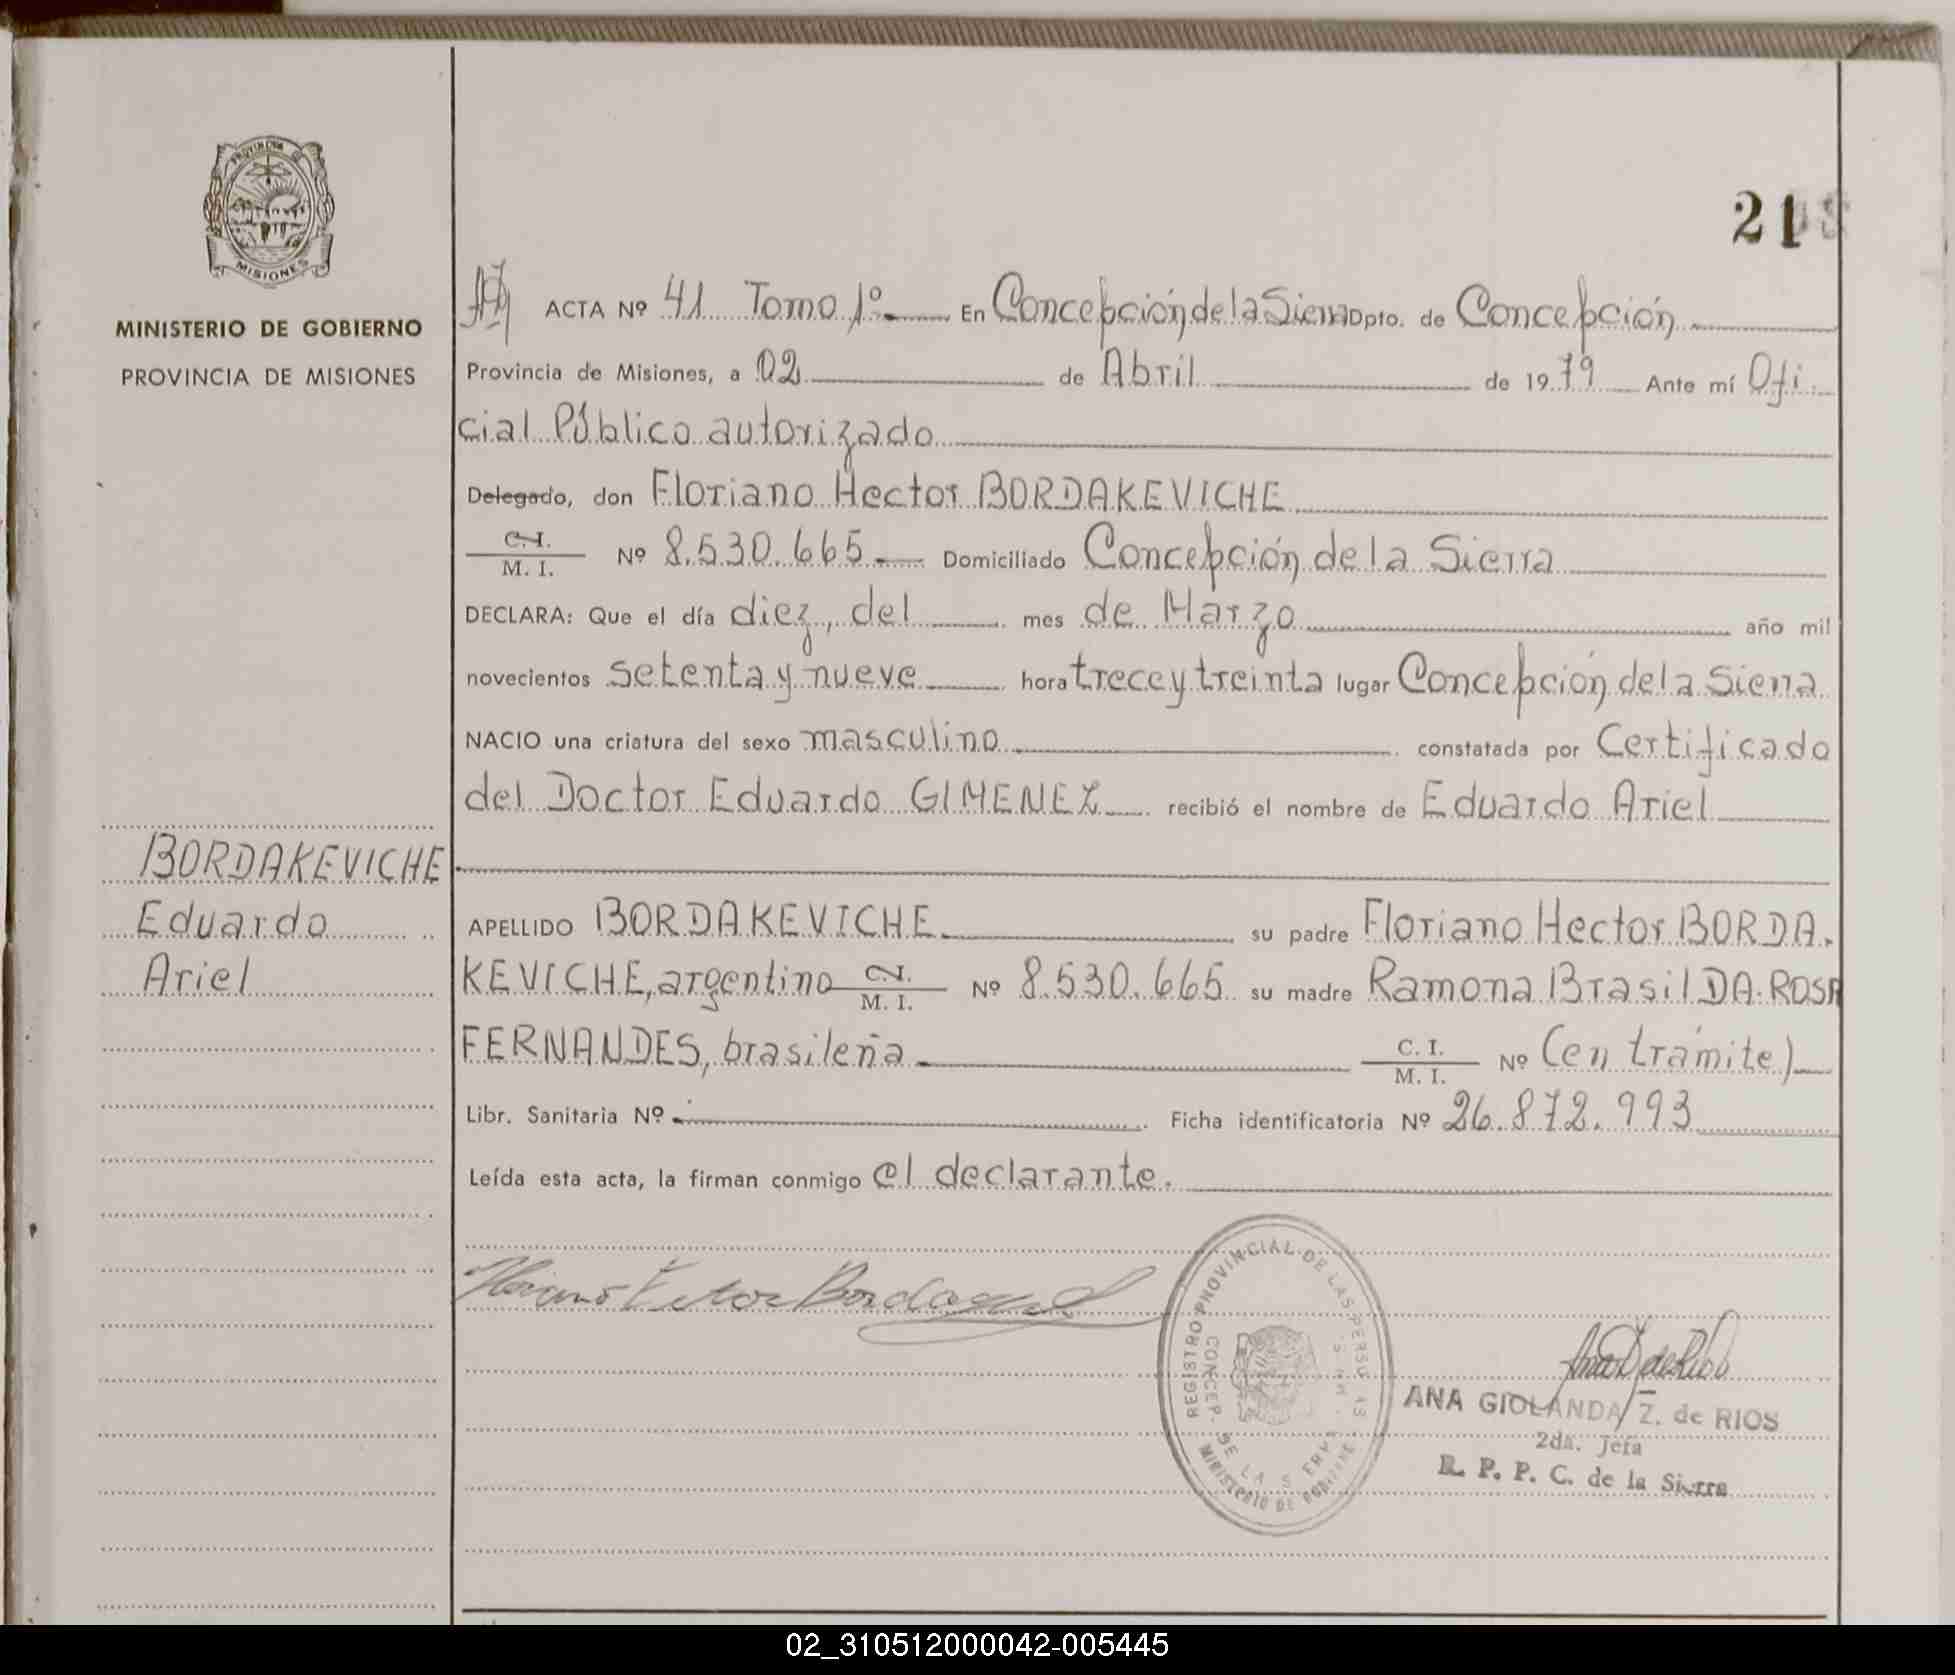 PROVINCIA
MISIONES
MINISTERIO DE GOBIERNO
PROVINCIA DE MISIONES
21
ACTA Nº 41 Tomo 1º En Concepción de la Sierra Dpto. de Concepción
Provincia de Misiones, a 02 de Abril de 1979 Ante mí Ofi
cial Público autorizado
Delegado, don Floriano Hector BORDAKEVICHE
C.I. / M. I. Nº 8.530.665 Domiciliado Concepción de la Sierra
DECLARA: Que el día diez, del mes de Marzo año mil
novecientos setenta y nueve hora trece y treinta lugar Concepción de la Sierra
NACIO una criatura del sexo masculino constatada por Certificado
del Doctor Eduardo GIMENEZ recibió el nombre de Eduardo Ariel
BORDAKEVICHE
Eduardo
Ariel
APELLIDO BORDAKEVICHE su padre Floriano Hector BORDA
KEVICHE, argentino C.I. / M. I. Nº 8.530.665 su madre Ramona Brasil DA ROSA
FERNANDES, brasileña C. I. / M. I. Nº (en trámite)
Libr. Sanitaria Nº Ficha identificatoria Nº 26.872.993
Leída esta acta, la firman conmigo el declarante.
REGISTRO PROVINCIAL DE LAS PERSONAS
CONCEP. DE LA SIERRA
MINISTERIO DE GOBIERNO
ANA GIOLANDA Z. de RIOS
2da. Jefa
R. P. P. C. de la Sierra
02_310512000042-005445